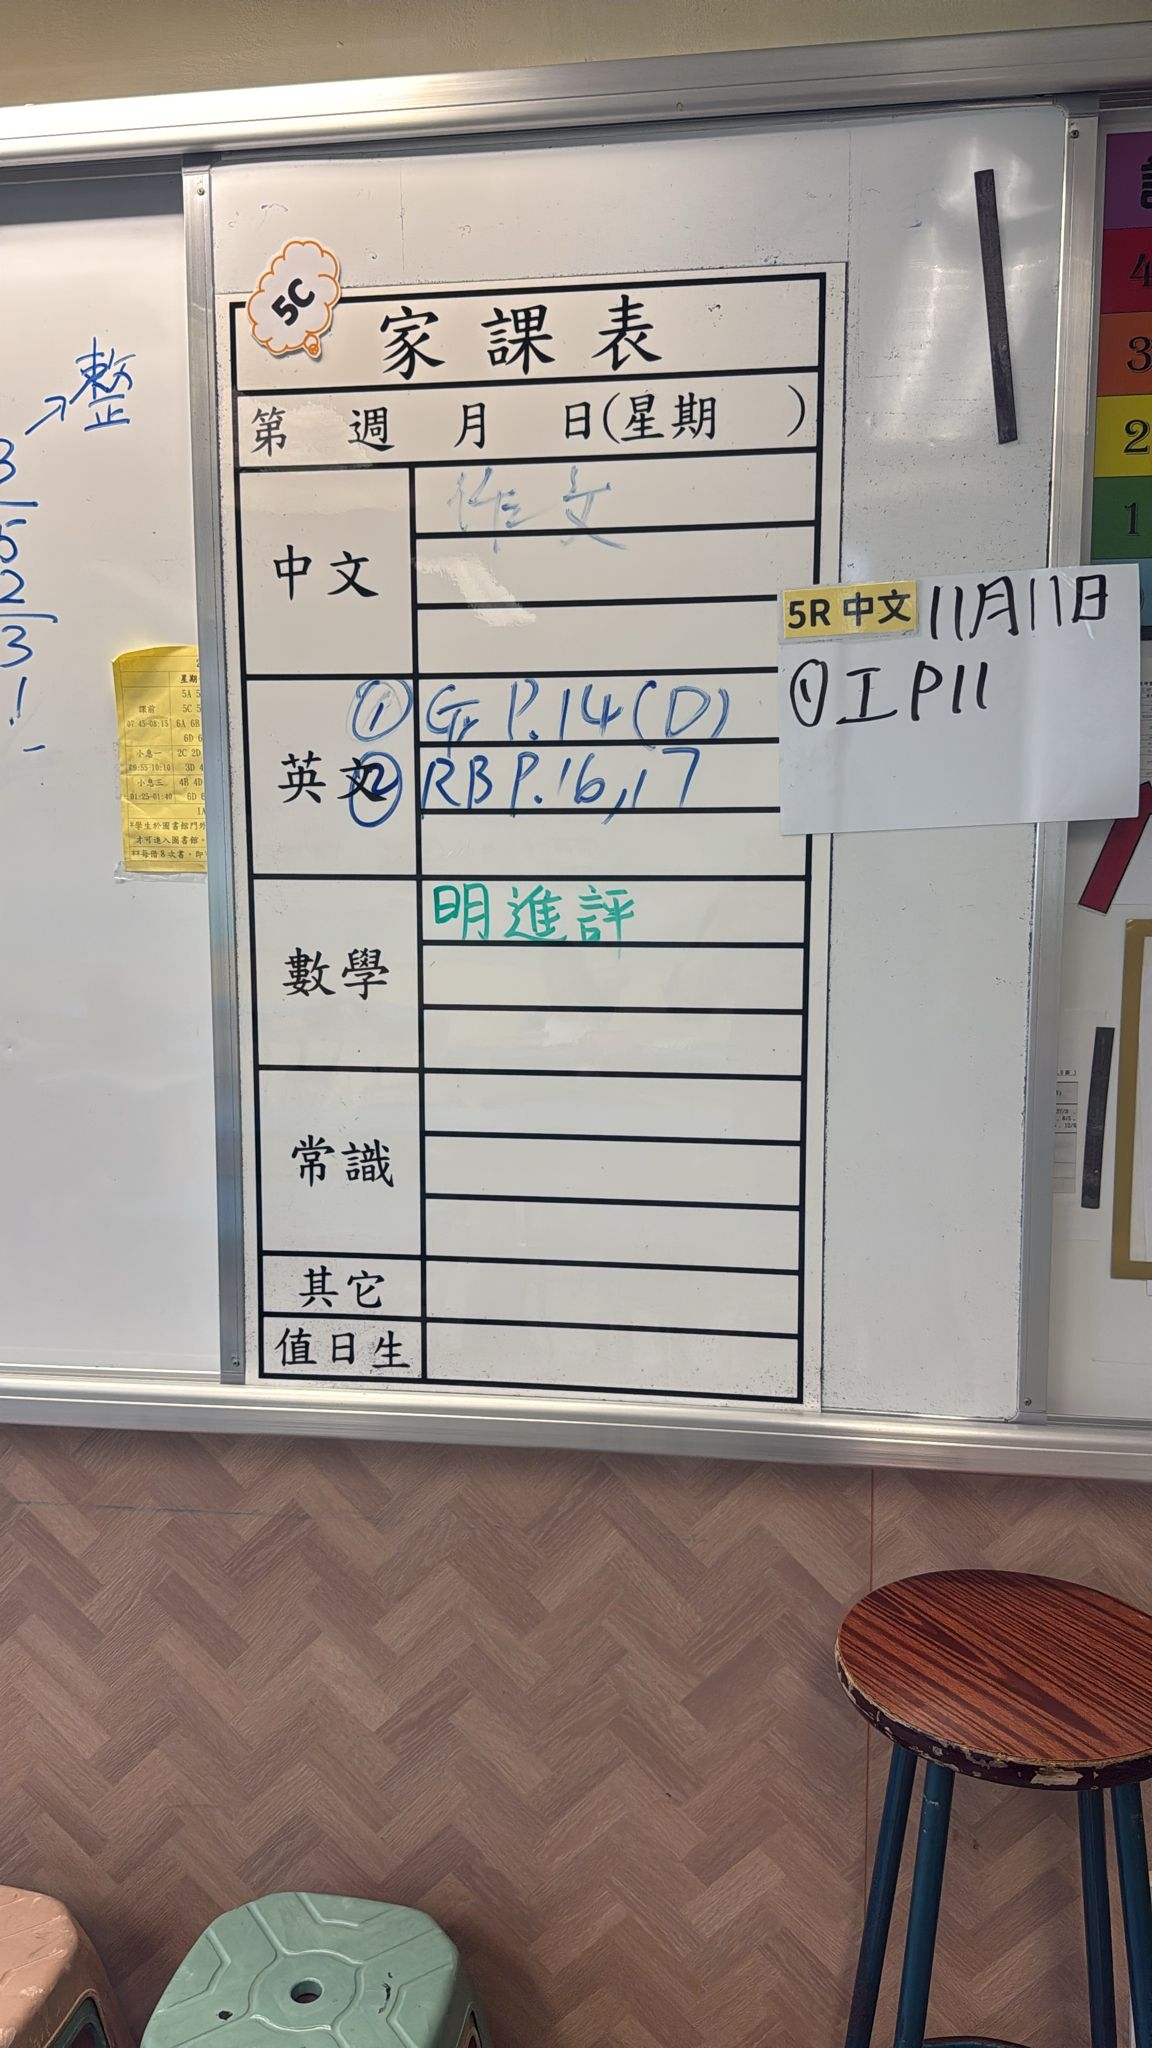 5C
家課表
第 週 月 日(星期 )
中文
作文
英文
① Gr P.14(D)
② RB P.16,17
數學
明進評
常識
其它
值日生
5R 中文 11月11日
① 工 P11
整
3
5
2
3
星期
課前
5A
5C
07:45-08:15
6A 6B
6D
小息一
2C 2D
09:55-10:10
3D
小息三
4B 4D
01:25-01:40
6D
1A
*學生於圖書館門外
才可進入圖書館。
**每借8次書，即
4
3
2
1